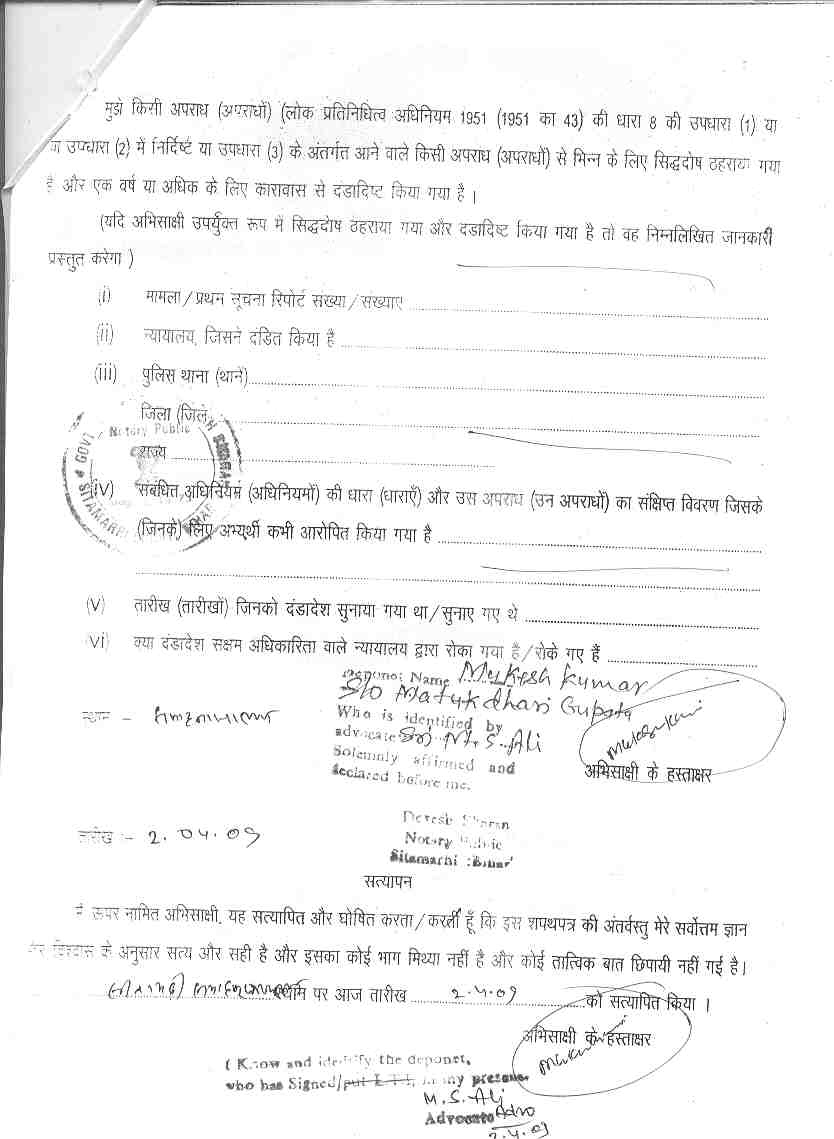 मुझे किसी अपराध (अपराधों) (लोक प्रतिनिधित्व अधिनियम 1951 (1951 का 43) की धारा 8 की उपधारा (1) या
या उपधारा (2) में निर्दिष्ट या उपधारा (3) के अंतर्गत आने वाले किसी अपराध (अपराधों) से भिन्न के लिए सिद्धदोष ठहराया गया
है और एक वर्ष या अधिक के लिए कारावास से दंडादिष्ट किया गया है ।
(यदि अभिसाक्षी उपर्युक्त रूप में सिद्धदोष ठहराया गया और दंडादिष्ट किया गया है तो वह निम्नलिखित जानकारी
प्रस्तुत करेगा )
(i) मामला/प्रथम सूचना रिपोर्ट संख्या/संख्याएं
(ii) न्यायालय, जिसने दंडित किया है
(iii) पुलिस थाना (थाने)
जिला (जिले
Notary Public
GOVT
SITAMARHI
राज्य
(iv) संबंधित अधिनियम (अधिनियमों) की धारा (धाराएँ) और उस अपराध (उन अपराधों) का संक्षिप्त विवरण जिसके
(जिनके) लिए अभ्यर्थी कभी आरोपित किया गया है
(v) तारीख (तारीखों) जिनको दंडादेश सुनाया गया था/सुनाए गए थे
(vi) क्या दंडादेश सक्षम अधिकारिता वाले न्यायालय द्वारा रोका गया है/रोके गए हैं
Deponet Name Mukesh Kumar
S/o Matukdhari Gupta
Who is identified by
advocate Sri M. S. Ali
Solemnly affirmed and
declared before me.
स्थान -
अभिसाक्षी के हस्ताक्षर
तारीख :- 2.04.09
Devesh Sharan
Notary Public
Sitamarhi :Bihar
सत्यापन
मैं ऊपर नामित अभिसाक्षी, यह सत्यापित और घोषित करता/करती हूँ कि इस शपथपत्र की अंतर्वस्तु मेरे सर्वोत्तम ज्ञान
और विश्वास के अनुसार सत्य और सही है और इसका कोई भाग मिथ्या नहीं है और कोई तात्विक बात छिपायी नहीं गई है।
स्थान पर आज तारीख 2.4.09 को सत्यापित किया ।
अभिसाक्षी के हस्ताक्षर
( Know and identify the deponet,
who has Signed/put L T I, in my presence
M. S. Ali
Advocate Adv
2.4.09